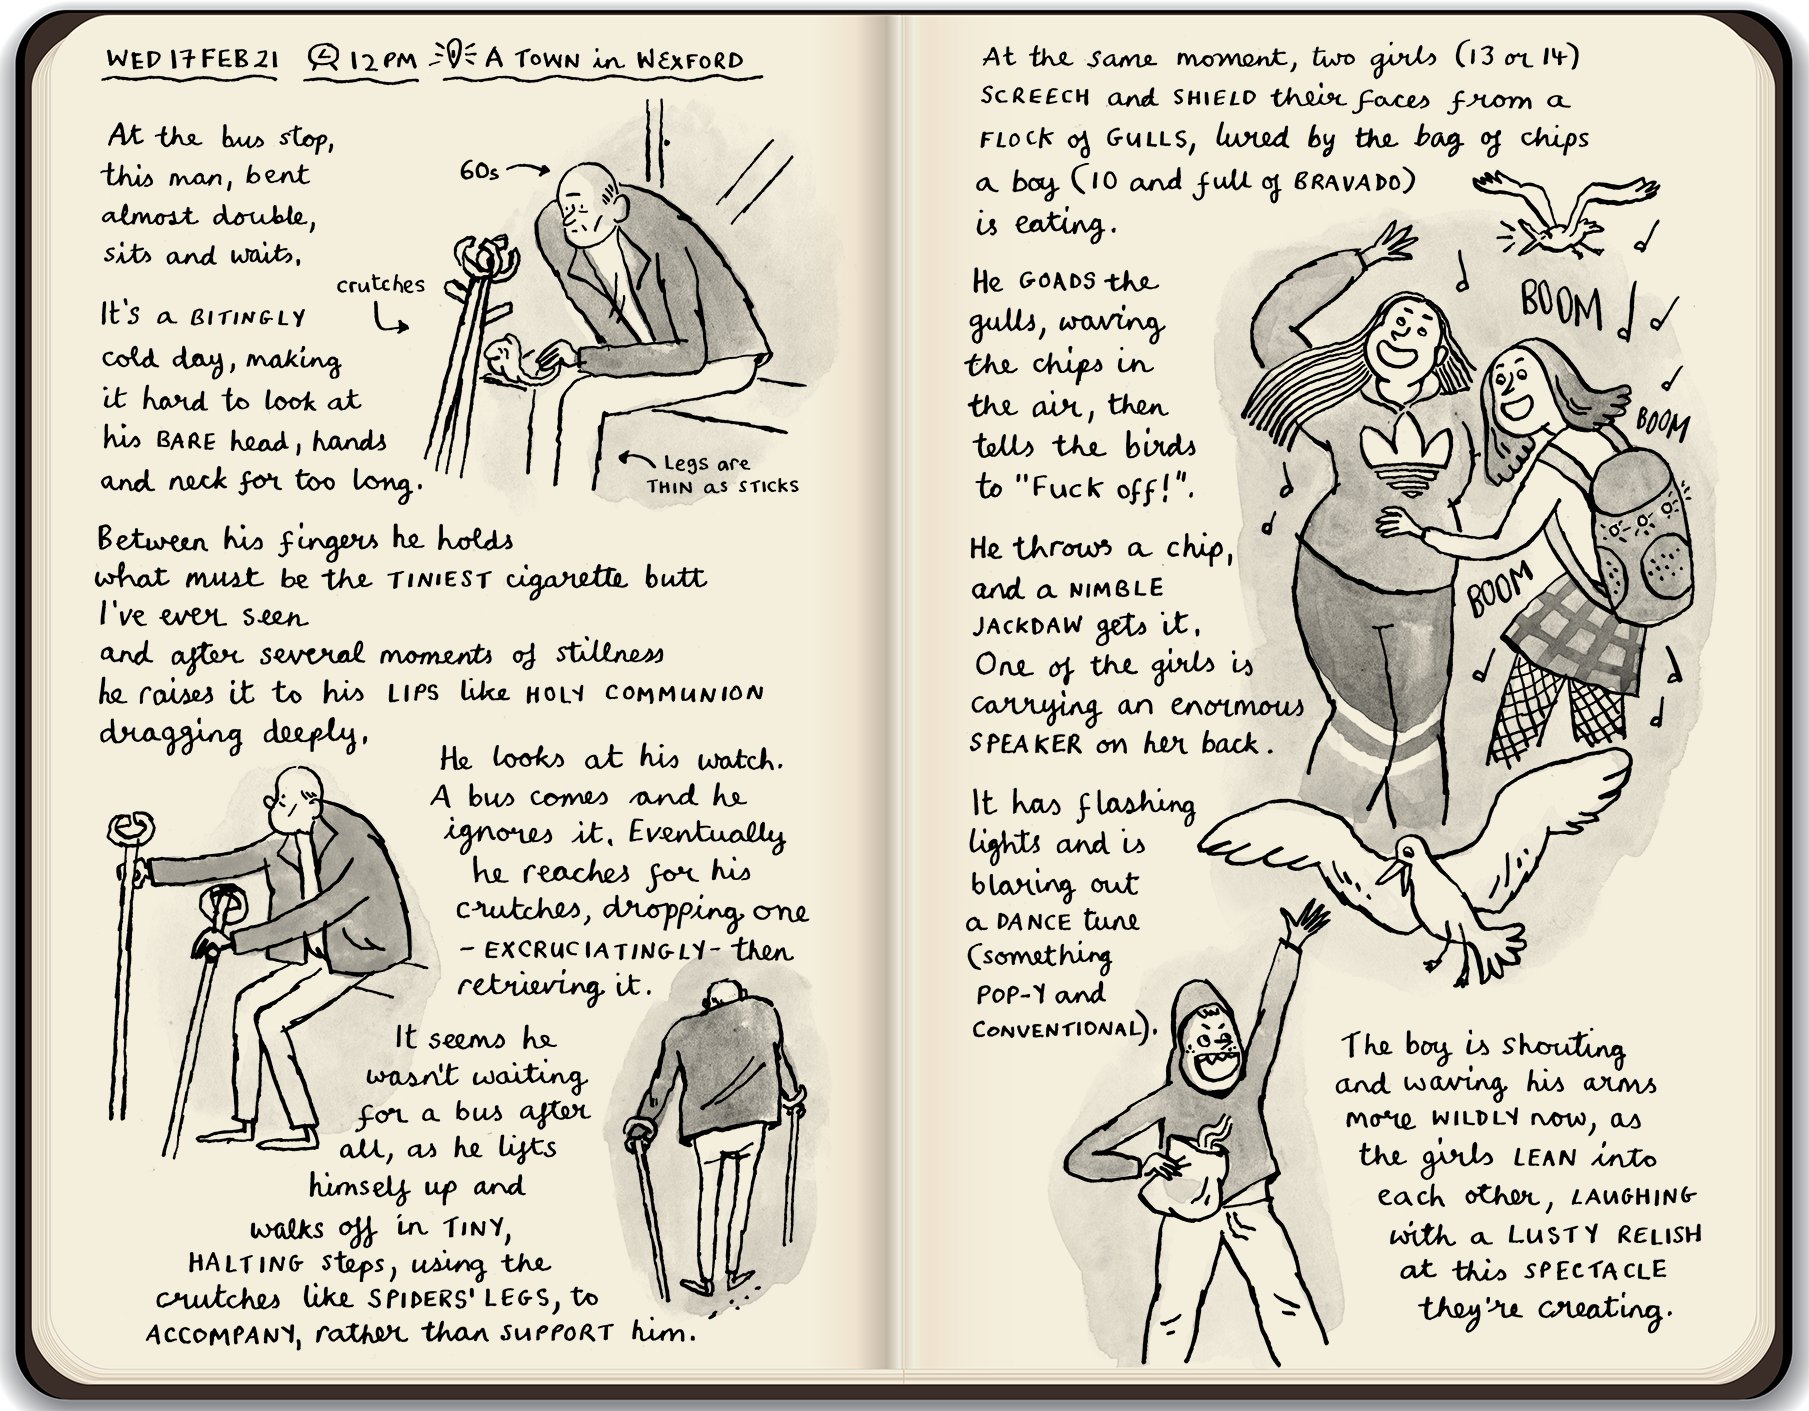 WED 17 FEB 21 12 PM A TOWN in WEXFORD
At the bus stop,
this man, bent
almost double,
sits and waits.
60s
crutches
It's a BITINGLY
cold day, making
it hard to look at
his BARE head, hands
and neck for too long.
Legs are
THIN as STICKS
Between his fingers he holds
what must be the TINIEST cigarette butt
I've ever seen
and after several moments of stillness
he raises it to his LIPS like HOLY COMMUNION
dragging deeply.
He looks at his watch.
A bus comes and he
ignores it. Eventually
he reaches for his
crutches, dropping one
- EXCRUCIATINGLY - then
retrieving it.
It seems he
wasn't waiting
for a bus after
all, as he lifts
himself up and
walks off in TINY,
HALTING steps, using the
crutches like SPIDERS' LEGS, to
ACCOMPANY, rather than SUPPORT him.
At the same moment, two girls (13 or 14)
SCREECH and SHIELD their faces from a
FLOCK of GULLS, lured by the bag of chips
a boy (10 and full of BRAVADO)
is eating.
He GOADS the
gulls, waving
the chips in
the air, then
tells the birds
to "Fuck off!".
BOOM
BOOM
BOOM
He throws a chip,
and a NIMBLE
JACKDAW gets it.
One of the girls is
carrying an enormous
SPEAKER on her back.
It has flashing
lights and is
blaring out
a DANCE tune
(something
POP-Y and
CONVENTIONAL).
The boy is shouting
and waving his arms
more WILDLY now, as
the girls LEAN into
each other, LAUGHING
with a LUSTY RELISH
at this SPECTACLE
they're creating.